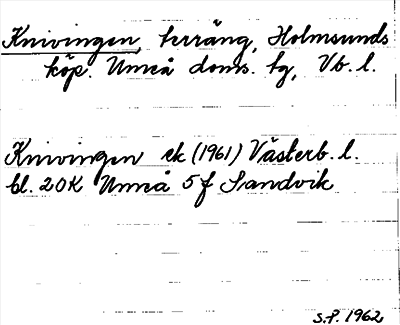 Knivingen, terräng, Holmsunds
köp. Umeå doms. tg, Vb. l.
Knivingen ek (1961) Västerb. l.
bl. 20K Umeå 5f Sandvik
S.P. 1962